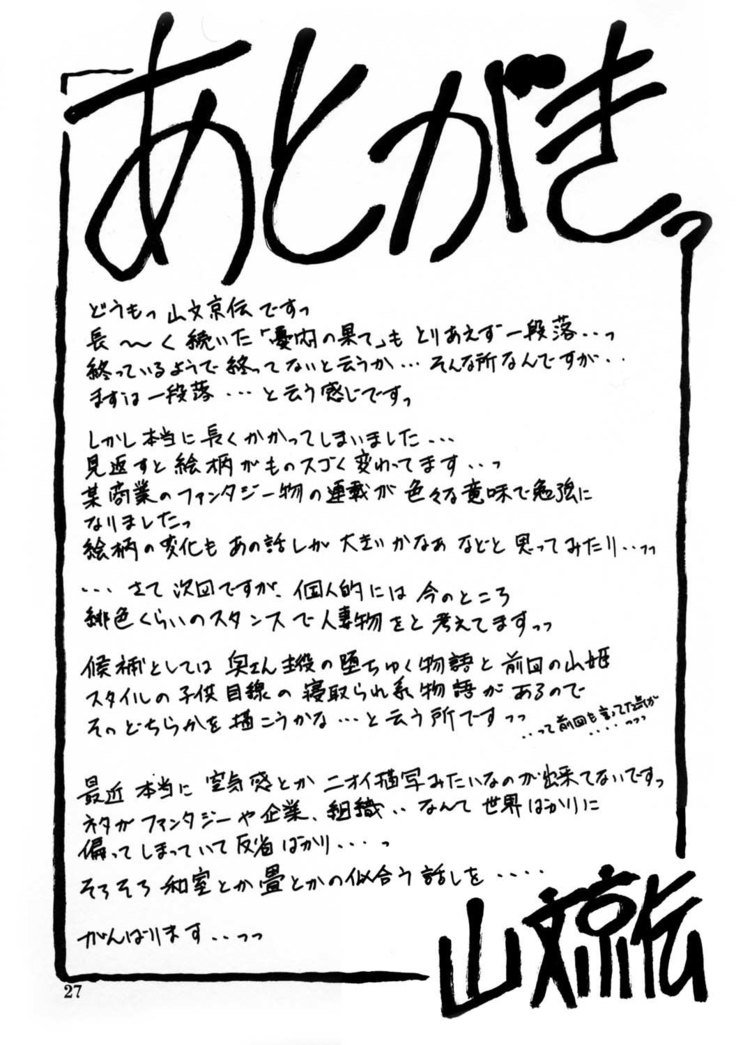 あとがきっ
どうもっ 山文京伝ですっ
長〜く続いた「憂内の果て」も とりあえず一段落‥っ
終っているようで 終ってないと云うか… そんな所なんですが‥
まずは一段落 … と云う感じですっ
しかし本当に長くかかってしまいました…
見返すと絵柄がものスゴく変わってます‥っ
某商業のファンタジー物の連載が 色々な意味で勉強に
なりましたっ
絵柄の変化も あの話しが 大きいかなぁ などと 思ってみたり‥っっ
… さて 次回ですが、個人的には 今のところ
緋色くらいのスタンスで人妻物をと 考えてますっっ
候補としては 奥さん主役の堕ちゆく物語と 前回の山姫
スタイルの子供目線の 寝取られ系物語が あるので
そのどちらかを 描こうかな … と云う所ですっっ
…って前回も言ってた気が‥‥っっっ
最近 本当に 空気感とか ニオイ描写みたいなのが出来てないですっ
ネタが ファンタジーや企業、組織‥ なんて 世界ばかりに
偏ってしまっていて反省ばかり‥‥っ
そろそろ 和室とか畳とかの似合う話しを ‥‥
がんばります‥っっ
山文京伝
27